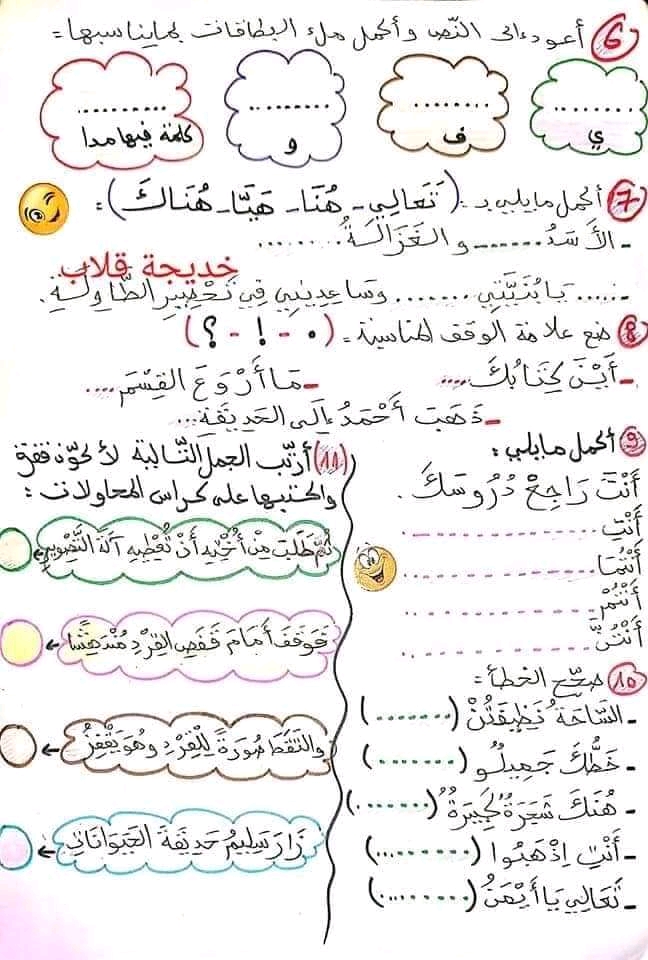 6 أعود إلى النّص وأكمل ملء البطاقات بما يناسبها:
.......... ي
........ ف
.......... و
............ كلمة فيها مدا
7 أكمل ما يلي بـ: (تَعَالِي - هُنَا - هَيَّا - هُنَاكَ):
- الأَسَدُ ........ والغَزَالَةُ ........
خديجة قلاب
- ..... يَا بُنَيَّتِي ....... وسَاعِدِينِي فِي تَحْضِيرِ الطَّاوِلَةِ.
8 ضع علامة الوقف المناسبة: (. - ! - ؟)
- أَيْنَ كِتَابُكَ .... - مَا أَرْوَعَ القِسْمَ ....
- ذَهَبَ أَحْمَدُ إِلَى الحَدِيقَةِ...
9 أكمل ما يلي:
أَنْتَ رَاجِعْ دُرُوسَكَ.
أَنْتِ ....................
أَنْتُمَا ....................
أَنْتُمْ ....................
أَنْتُنَّ ....................
10 صحّح الخطأ:
- السَّاحَةُ نَظِيفَتُنْ (........)
- خَطُّكَ جَمِيلُو (........)
- هُنَكَ شَجَرَةٌ كَبِيرَةٌ (........)
- أَنْتِ اِذْهَبُوا (........)
- تَعَالِي يَا أَيْمَنُ (........)
11) أرتّب الجمل التّالية لأكوّن فقرة
وأكتبها على كراس المحاولات:
ثُمَّ طَلَبَ مِنْ أُخْتِهِ أَنْ تُعْطِيَهُ آلَةَ التَّصْوِيرِ
فَوَقَفَ أَمَامَ قَفَصِ القِرْدِ مُنْدَهِشًا
والْتَقَطَ صُورَةً لِلْقِرْدِ وهُوَ يَقْفِزُ
زَارَ سَلِيمُ حَدِيقَةَ الحَيَوَانَاتِ